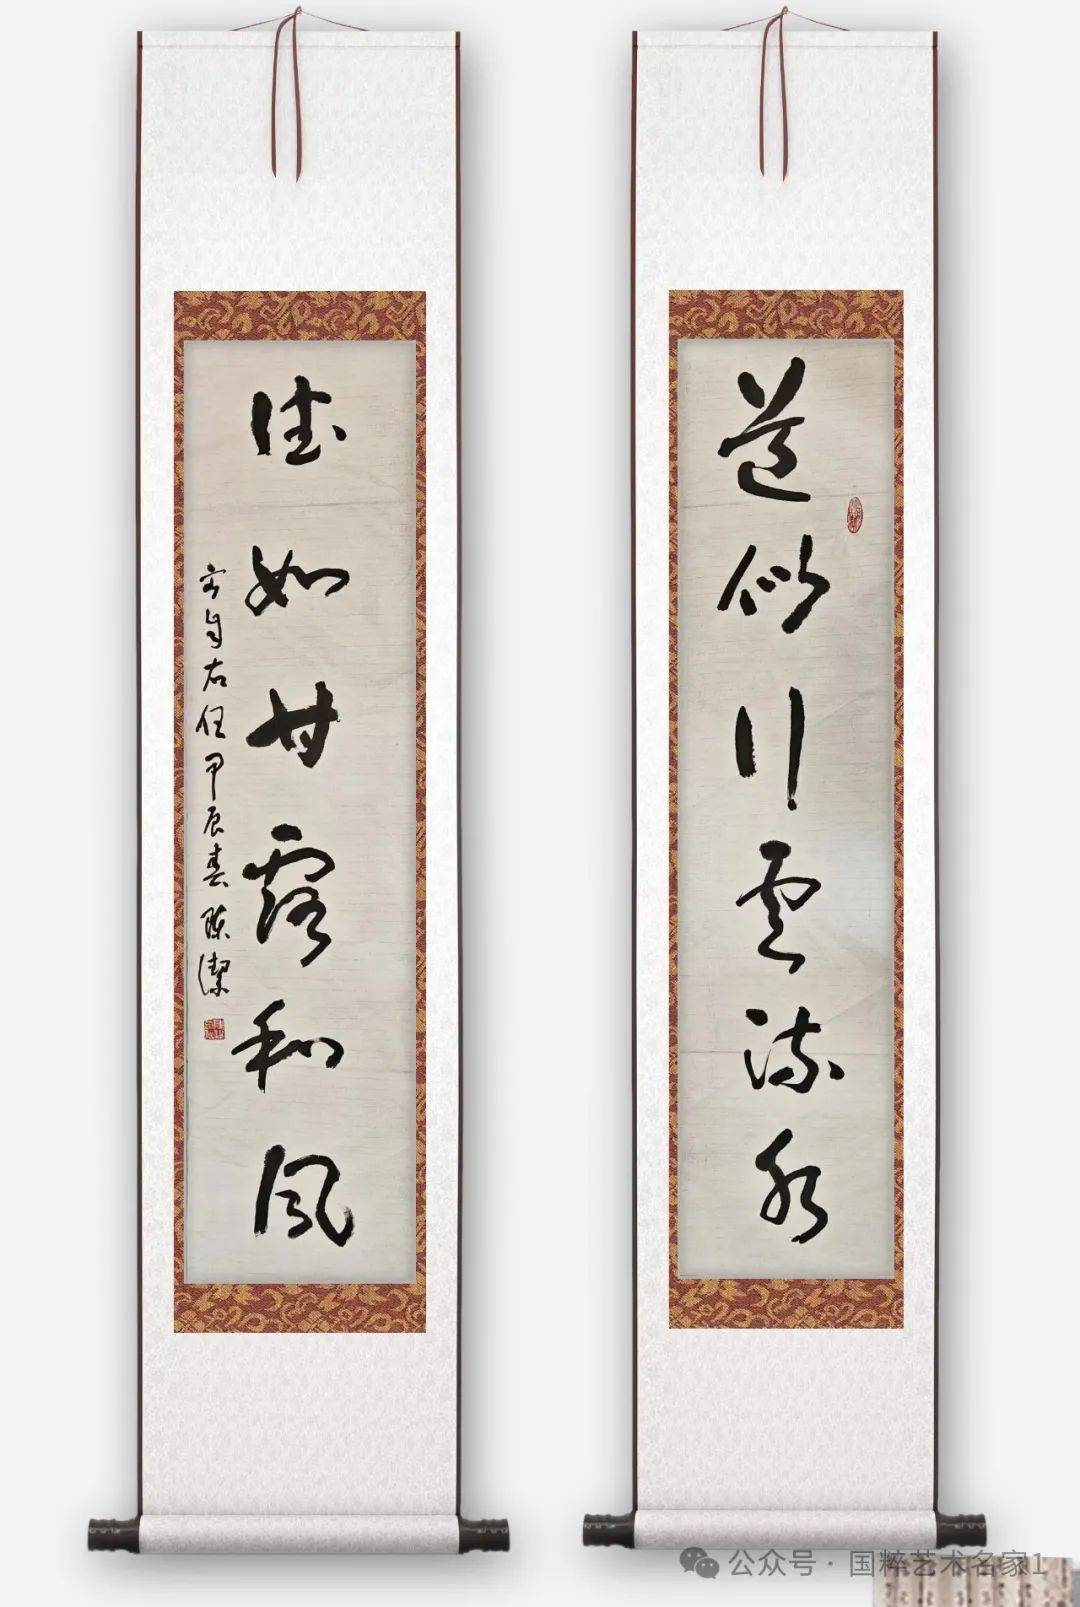 道似行雲流水
德如甘露和风
右任甲辰春陈潔
公众号 · 国粹艺术名家1